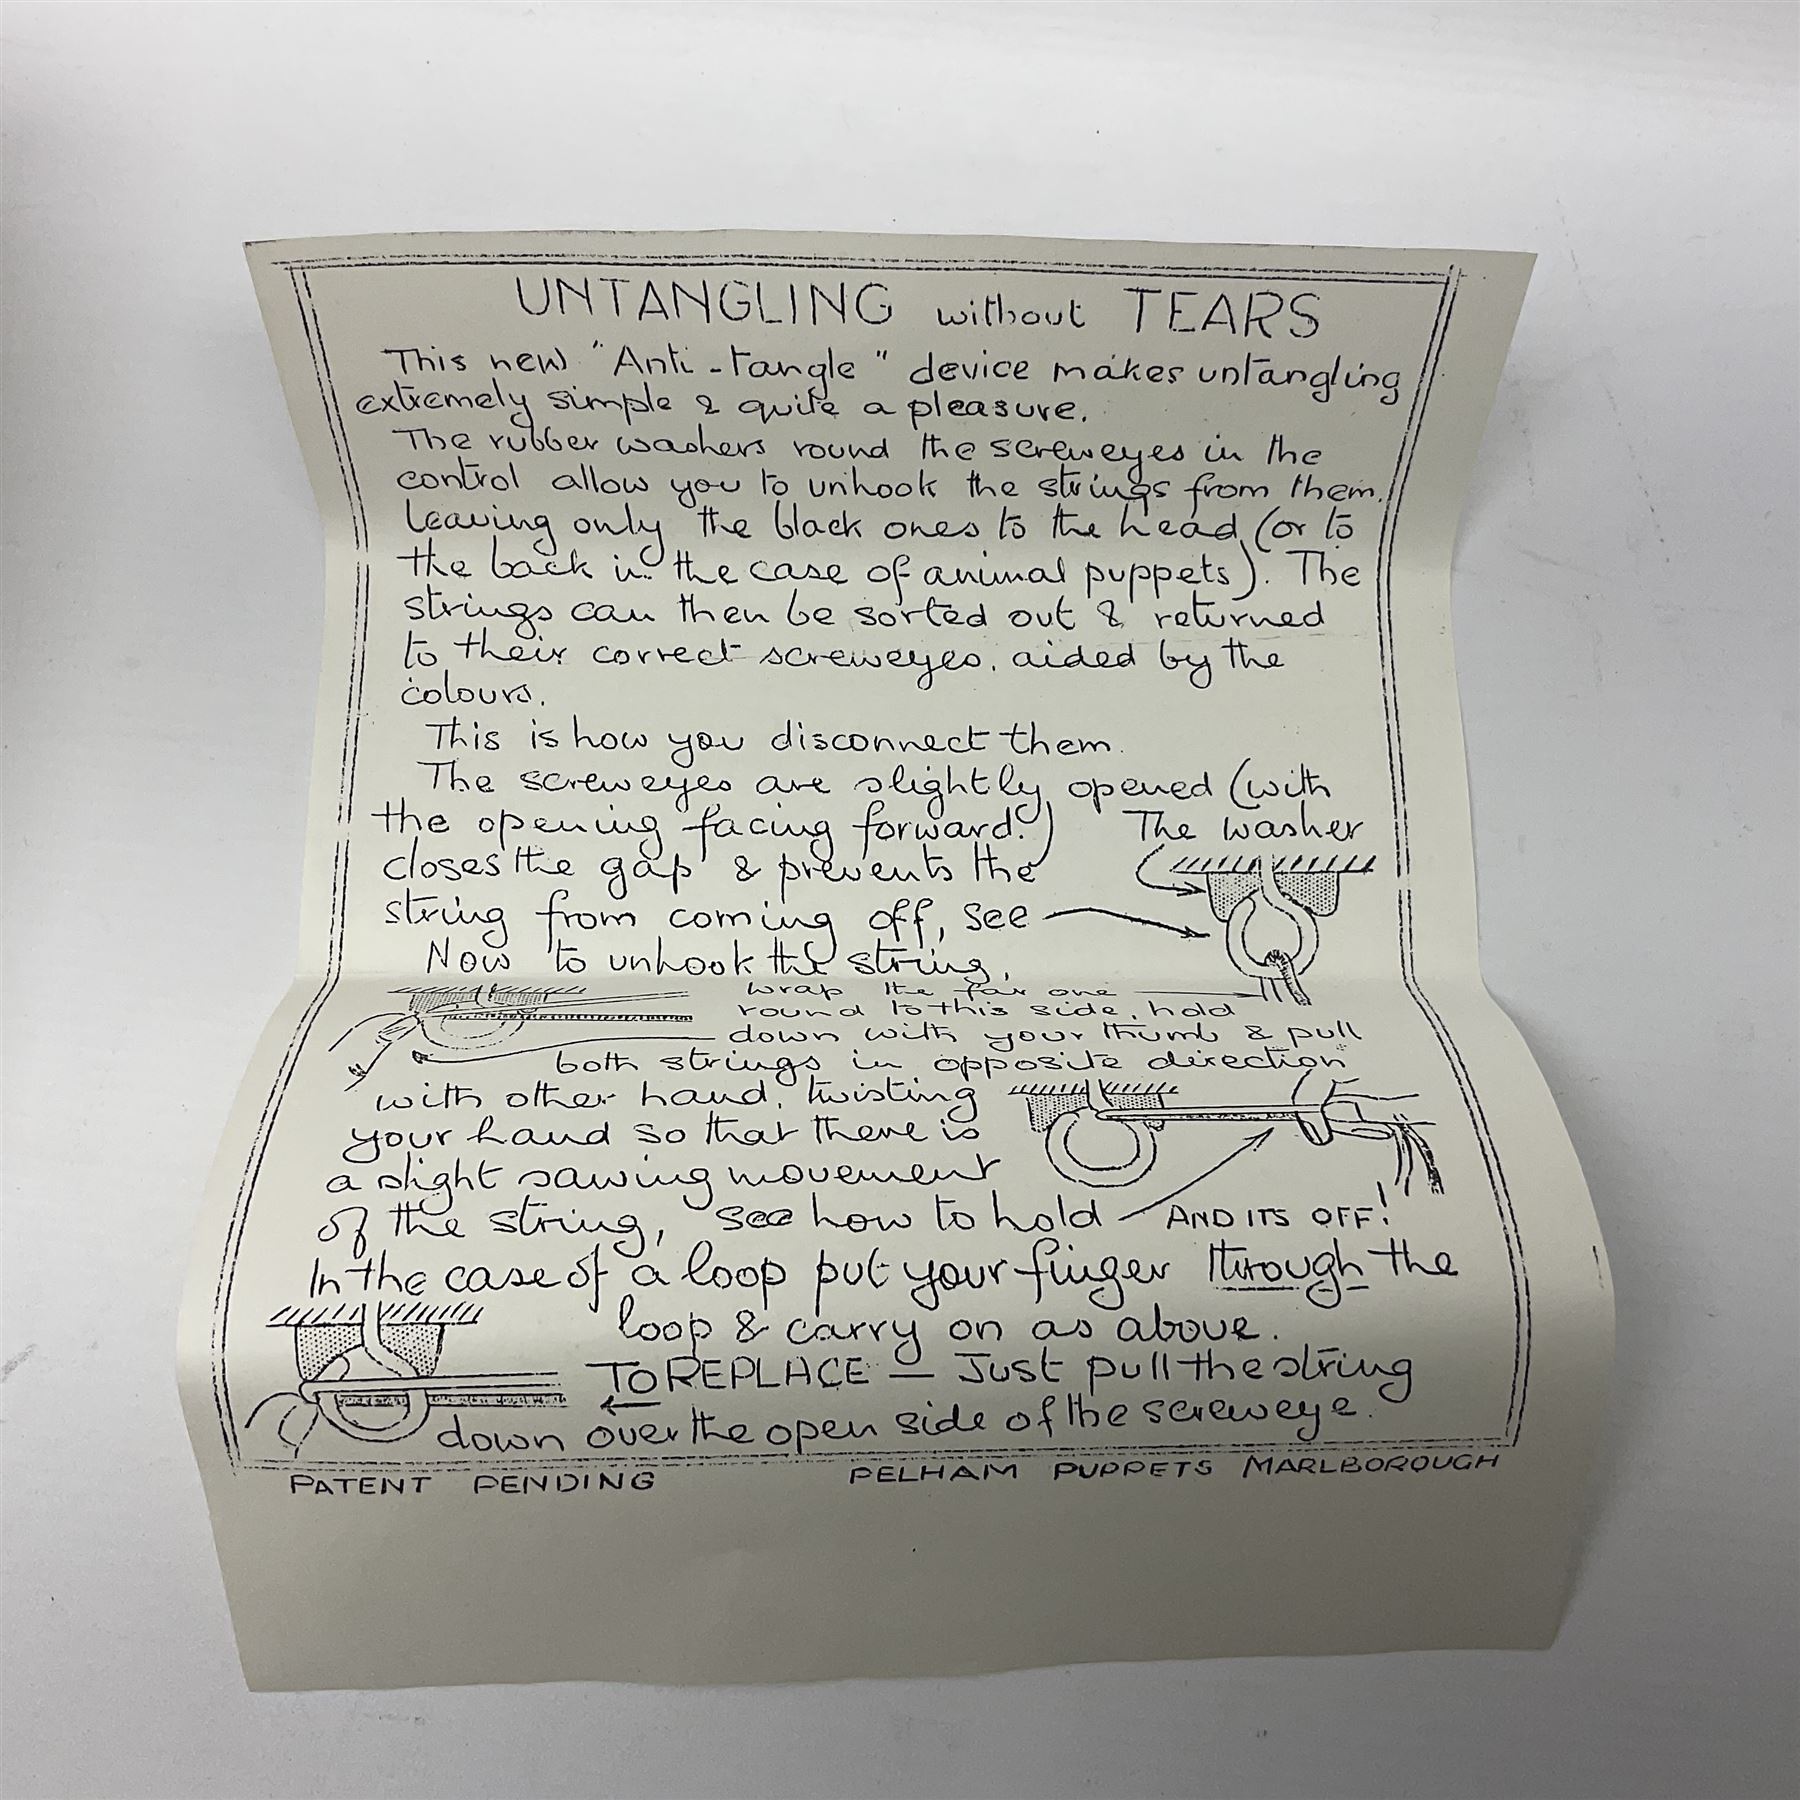 UNTANGLING without TEARS
This new "Anti-tangle" device makes untangling
extremely simple & quite a pleasure.
The rubber washers round the screweyes in the
control allow you to unhook the strings from them.
leaving only the black ones to the head (or to
the back in the case of animal puppets). The
strings can then be sorted out & returned
to their correct screweyes. aided by the
colours.
This is how you disconnect them.
The screweyes are slightly opened (with
the opening facing forward.) The washer
closes the gap & prevents the
string from coming off, see
Now to unhook the string,
wrap the far one
round to this side, hold
down with your thumb & pull
both strings in opposite direction
with other hand, twisting
your hand so that there is
a slight sawing movement
of the string, see how to hold AND ITS OFF!
In the case of a loop put your finger through the
loop & carry on as above.
TO REPLACE — Just pull the string
down over the open side of the screweye.
PATENT PENDING PELHAM PUPPETS MARLBOROUGH